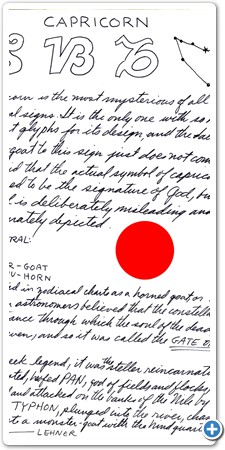 CAPRICORN
orn is the most mysterious of all
al signs. It is the only one with so
t glyphs for its design, and the
goat to this sign just does not
d that the actual symbol of
ed to be the signature of God,
l is deliberately misleading and
rately depicted.
RAL:
R-GOAT
U-HORN
ed in zodiacal charts as a horned goat or
astronomers believed that the
ance through which the soul of the dead
ven, and so it was called the GATE
eek legend, it was the stellar
hoofed PAN, god of fields and flocks,
and attacked on the banks of the Nile by
TYPHON, plunged into the river,
to a monster-goat with the hind
—LEHNER